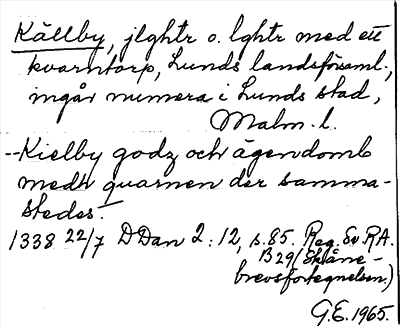 Källby, jlghtr o. lghtr med ett
kvarntorp, Lunds landsförsaml.,
ingår numera i Lunds stad,
Malm. l.
--Kielby godz och ägendomb
medh quarnen der samma-
stedes.
1338 22/7 DDan 2:12, s.85. Reg. Sv RA.
B29 (Skåne-
brevsfortegnelsen.)
G.E. 1965.